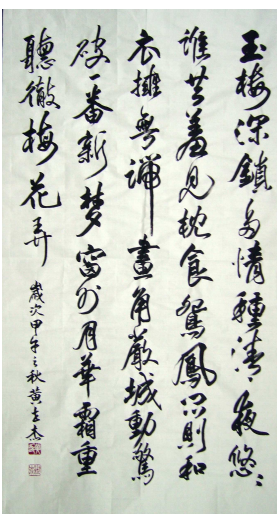 玉樓深鎖多情種清夜悠〻
誰共羞見枕衾鴛鳳悶則和
衣擁無端畫角嚴城動驚
破一番新夢窗外月華霜重
聽徹梅花弄
歲次甲午之秋黃